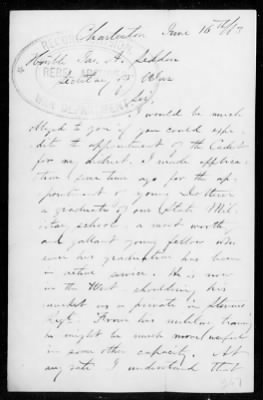 Charleston June 16th/63
RECORD DIVISION
REBEL ARCHIVES
WAR DEPARTMENT
Honble Jas. A. Seddon
Secretary of War
Sir,
I would be much
obliged to you if you could expe-
dite the appointment of the Cadet
for my district. I made applica-
tion some time ago for the ap-
pointment of young
a graduate of our State Mil-
itary school, a most worthy
and gallant young fellow who
ever since his graduation has been
in active service. He is now
in the West shouldering his
musket as a private in
Regt. From his military train
he might be much more useful
in some other capacity. At
any rate I understand that